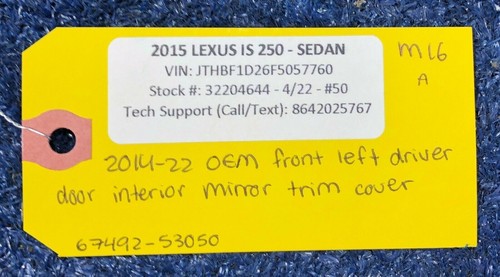 2015 LEXUS IS 250 - SEDAN
VIN: JTHBF1D26F5057760
Stock #: 32204644 - 4/22 - #50
Tech Support (Call/Text): 8642025767
M16
A
2014-22 OEM front left driver
door interior mirror trim cover
67492-53050